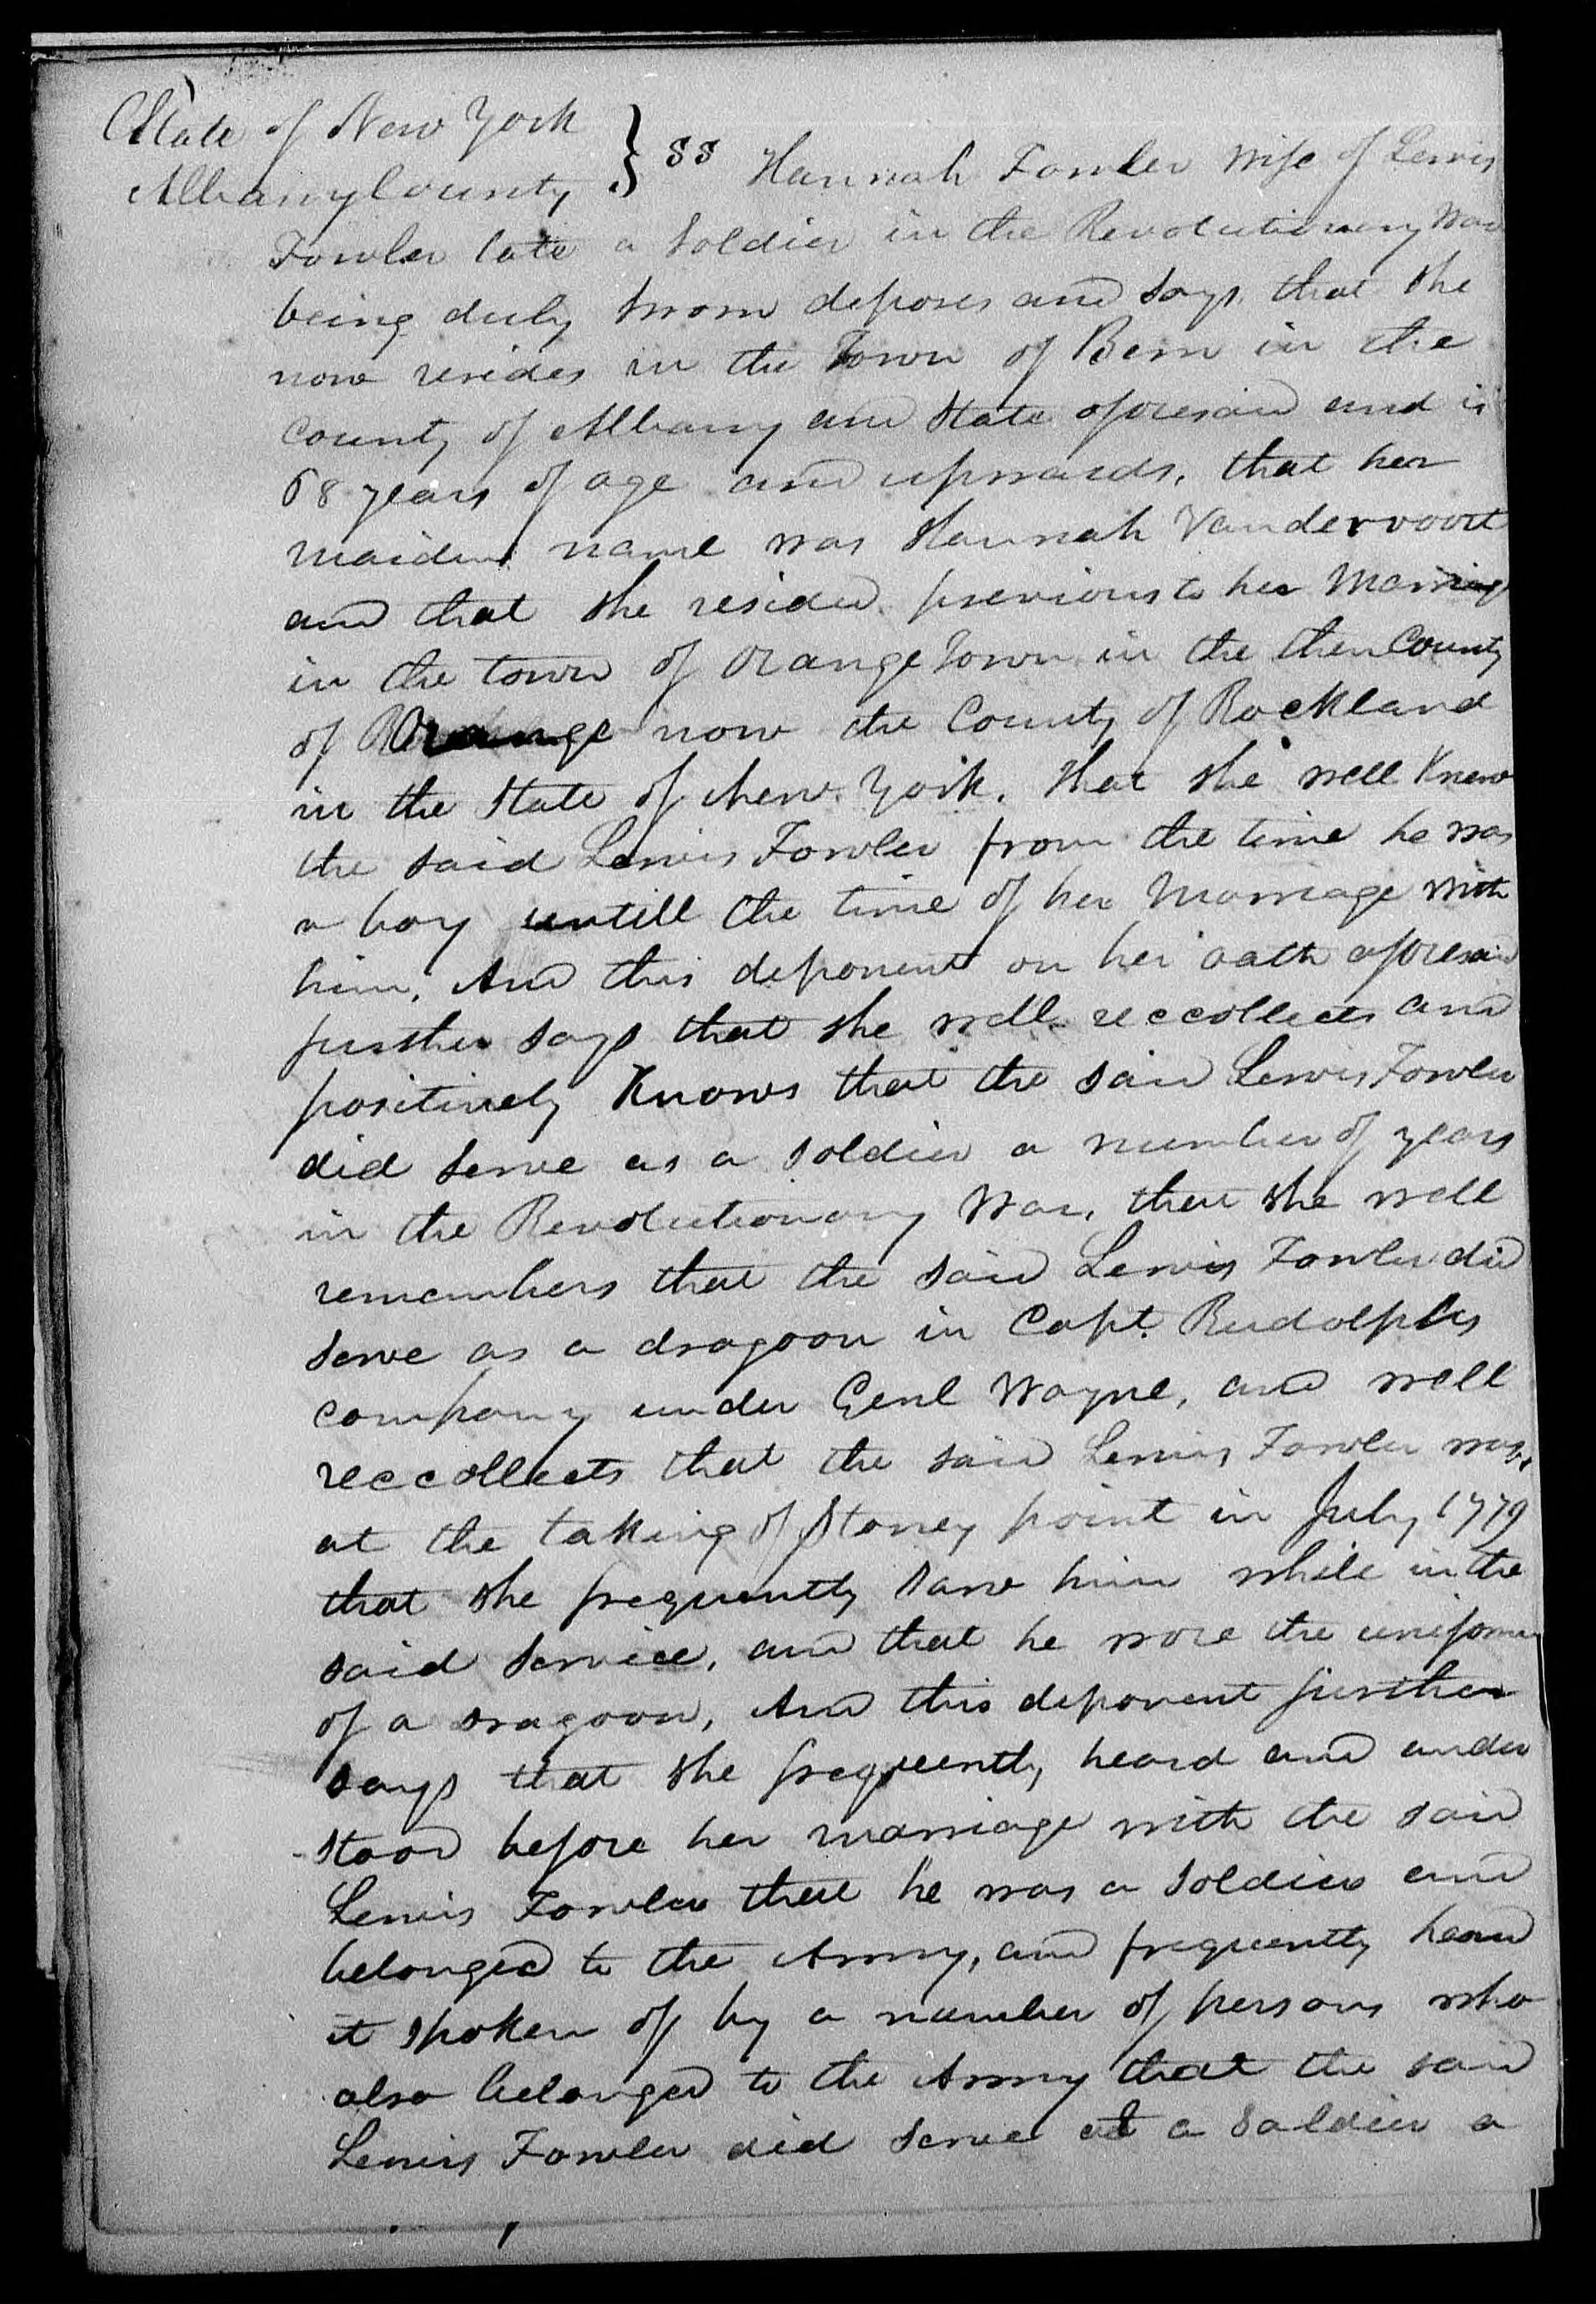 State of New York
Albany County } SS Hannah Fowler wife of Lewis
Fowler late a Soldier in the Revolutionary War
being duly sworn deposes and says that she
now resides in the Town of Bern in the
County of Albany and State aforesaid and is
68 years of age and upwards, that her
maiden name was Hannah Vandervoort
and that she resided previous to her Marriage
in the town of Orange Town in the then County
of Orange now the County of Rockland
in the State of New York. That she well Knew
the said Lewis Fowler from the time he was
a boy untill the time of her Marriage with
him, And this deponent on her oath aforesaid
further says that she well reccollects and
positively Knows that the said Lewis Fowler
did serve as a soldier a number of years
in the Revolutionary War, that she well
remembers that the said Lewis Fowler did
serve as a dragoon in Capt. Rudolphs
company under Genl Wayne, and well
reccollects that the said Lewis Fowler was
at the taking of Stoney point in July 1779
that she frequently saw him while in the
said service, and that he wore the uniform
of a dragoon, And this deponent further
says that she frequently heard and under
-stood before her marriage with the said
Lewis Fowler that he was a soldier and
belonged to the Army, and frequently heard
it spoken of by a number of persons who
also belonged to the Army that the said
Lewis Fowler did serve as a soldier a